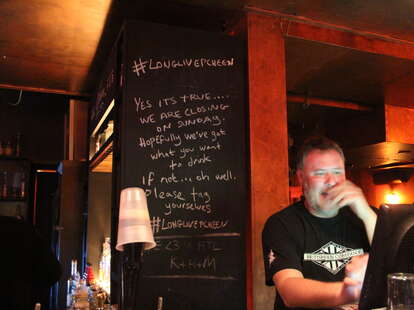 #LONGLIVEPCHEEN
YES ITS TRUE....
WE ARE CLOSING
ON SUNDAY.
Hopefully we've got
what you want
to drink
If not... oh well.
Please tag
yourselves
#LONGLIVEPCHEEN
<3 ATL
K+K+M